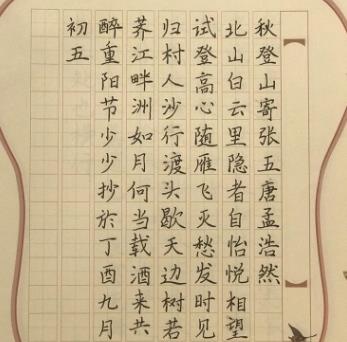 秋登山寄张五唐孟浩然
北山白云里隐者自怡悦相望
试登高心随雁飞灭愁发时见
归村人沙行渡头歇天边树若
荠江畔洲如月何当载酒来共
醉重阳节少少抄於丁酉九月
初五